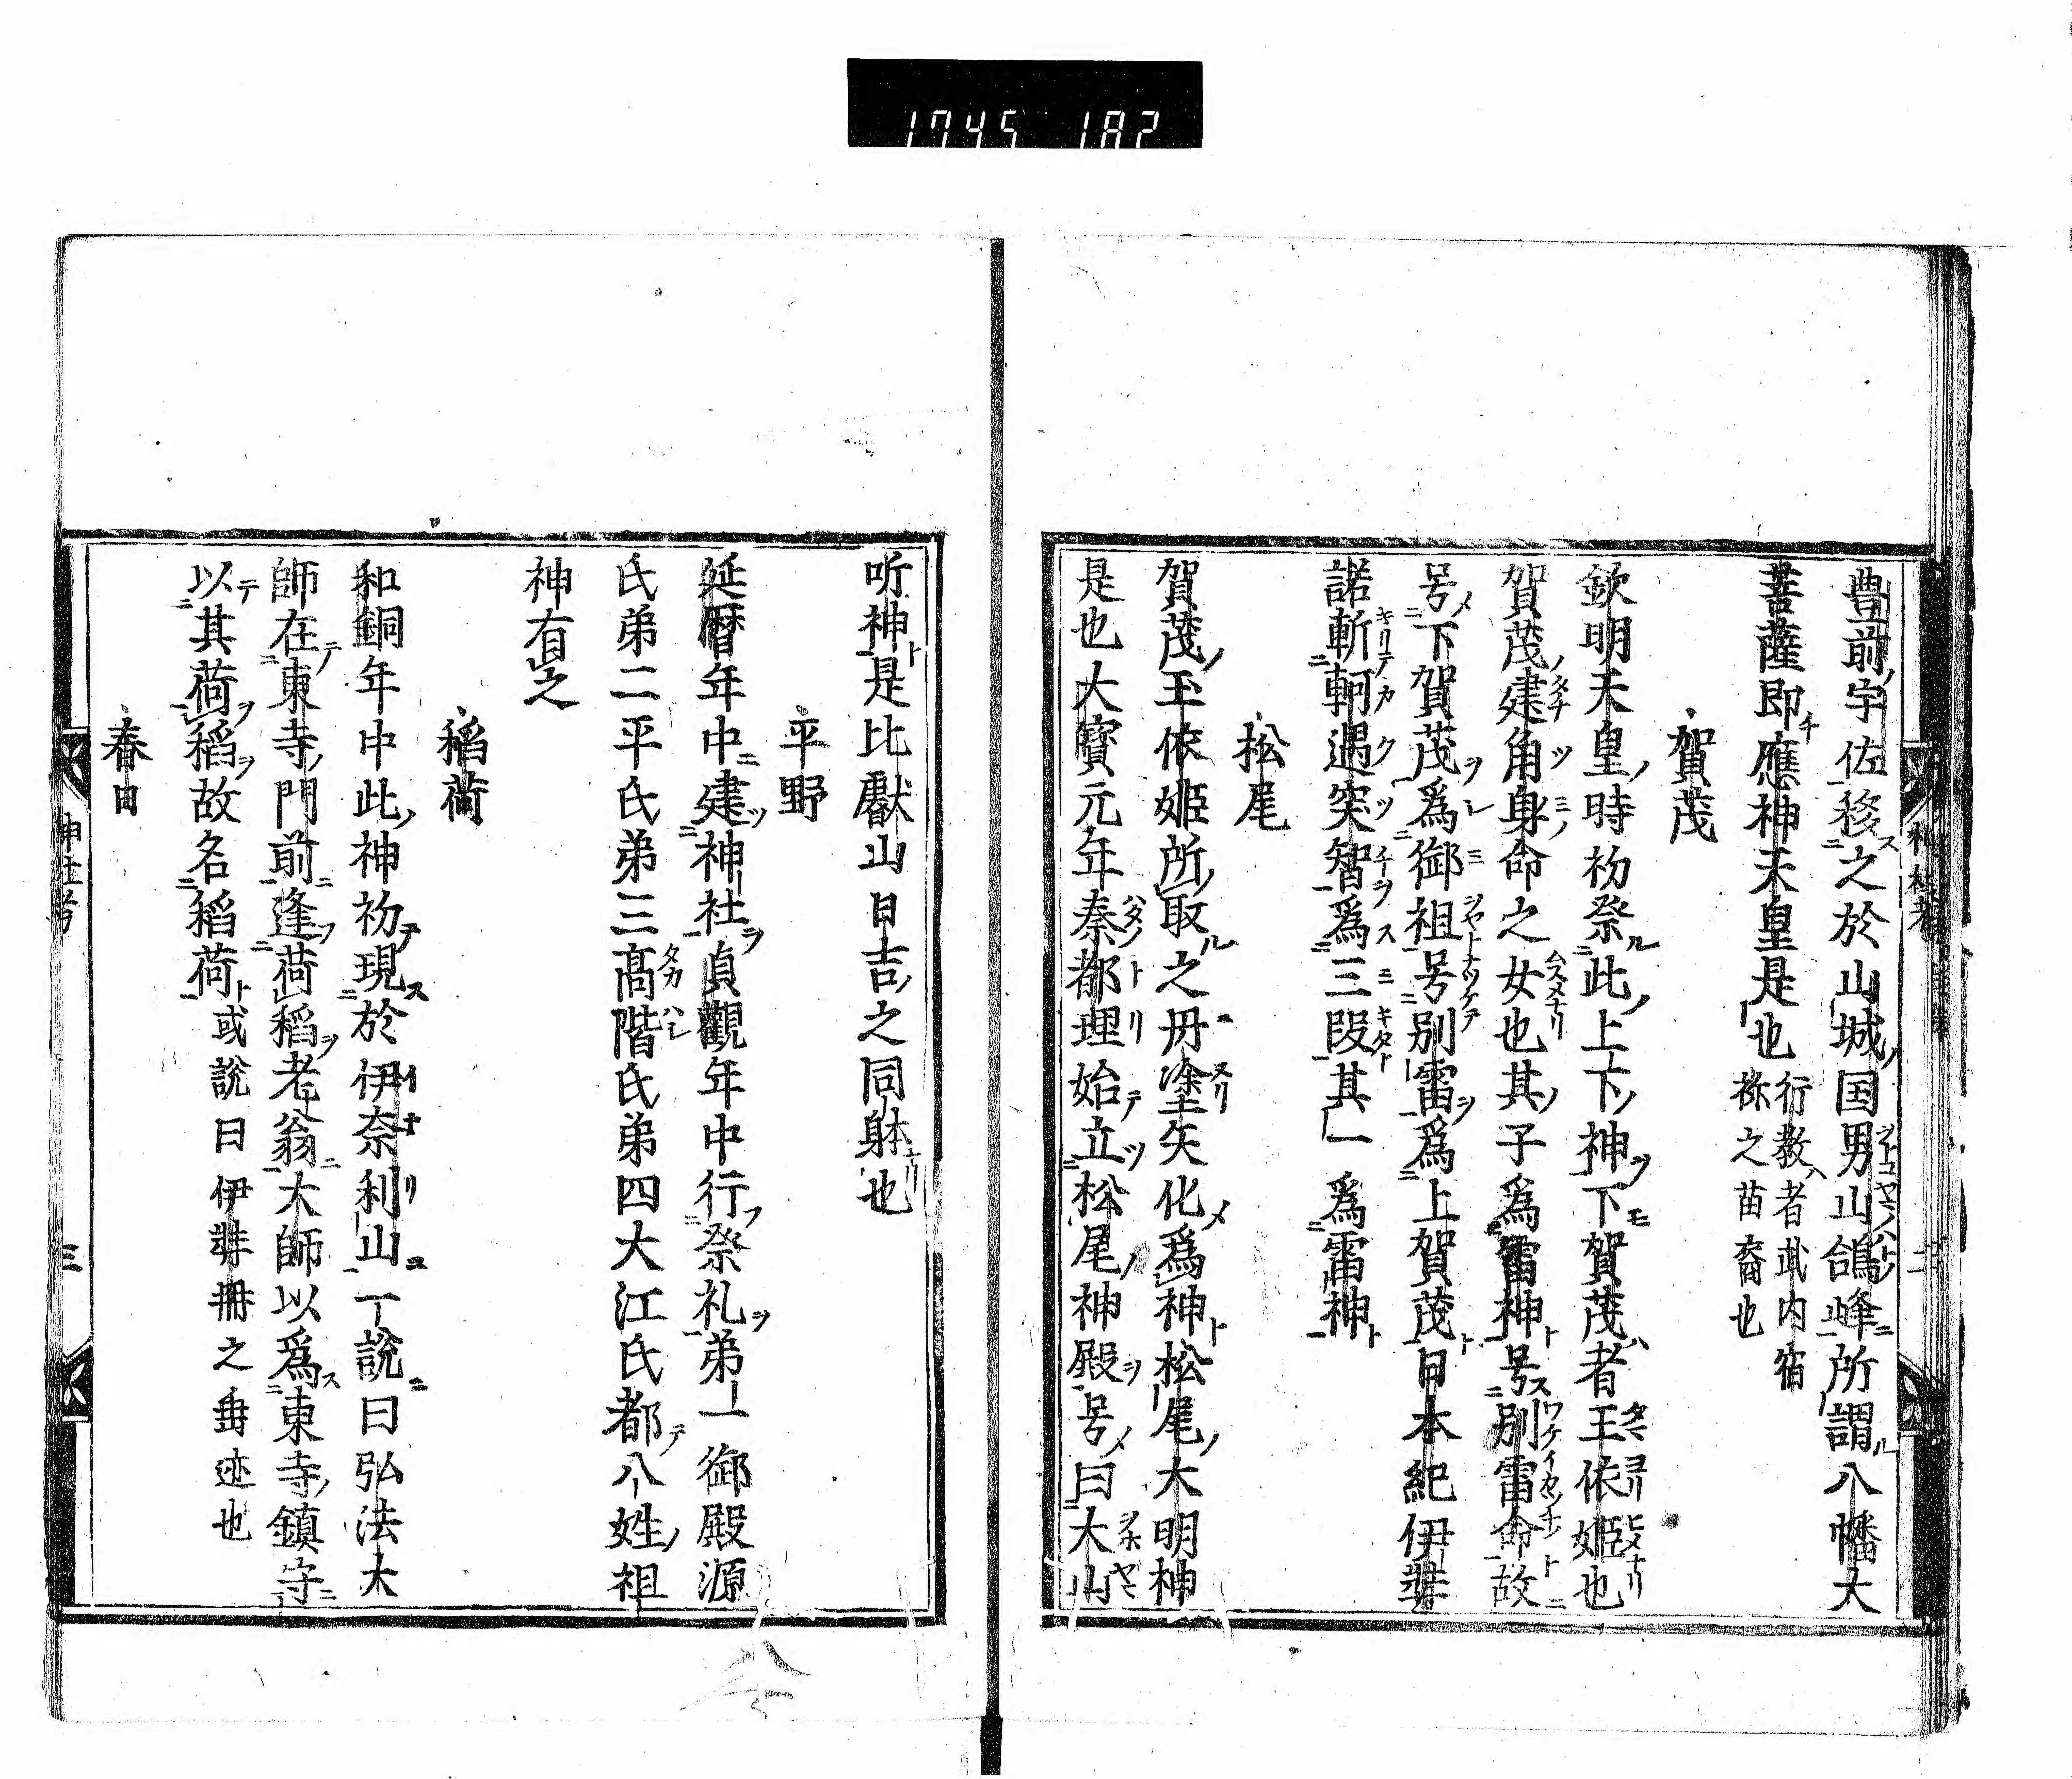 1745 182
豊前宇佐移之於山城国男山鴿峰所謂八幡大
菩薩即應神天皇是也行教者武内宿
祢之苗裔也
賀茂
欽明天皇時礿祭此上下神下賀茂者玉依姬也
賀茂建角身命之女也其子為雷神号別雷命故
号下賀茂爲御祖号別雷爲上賀茂日本紀伊弉
諾斬軻遇突智爲三段其一爲雷神
松尾
賀茂玉依姬所取之丹塗矢化爲神松尾大明神
是也大寳元年秦都理始立松尾神殿号曰大山
听神是比叡山日吉之同躰也
平野
延暦年中建神社貞觀年中行祭礼弟一御殿源
氏弟二平氏弟三髙階氏弟四大江氏都八姓祖
神有之
稲荷
和銅年中此神礿現於伊奈利山一說曰弘法大
師在東寺門前逢荷稲老翁大師以爲東寺鎮守
以其荷稲故名稲荷或說曰伊弉冊之垂迹也
春日
神社考 三